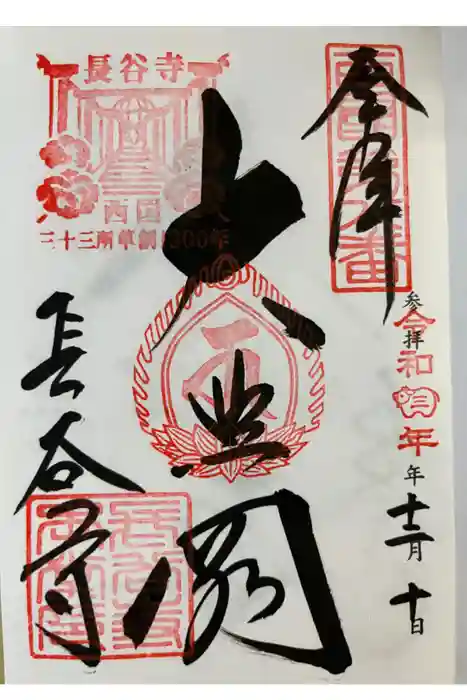 奉拝
西国第八番
参拝
令和
年
年
十二月
十日
大悲閣
長谷寺
長谷寺
西国
三十三所草創1300年